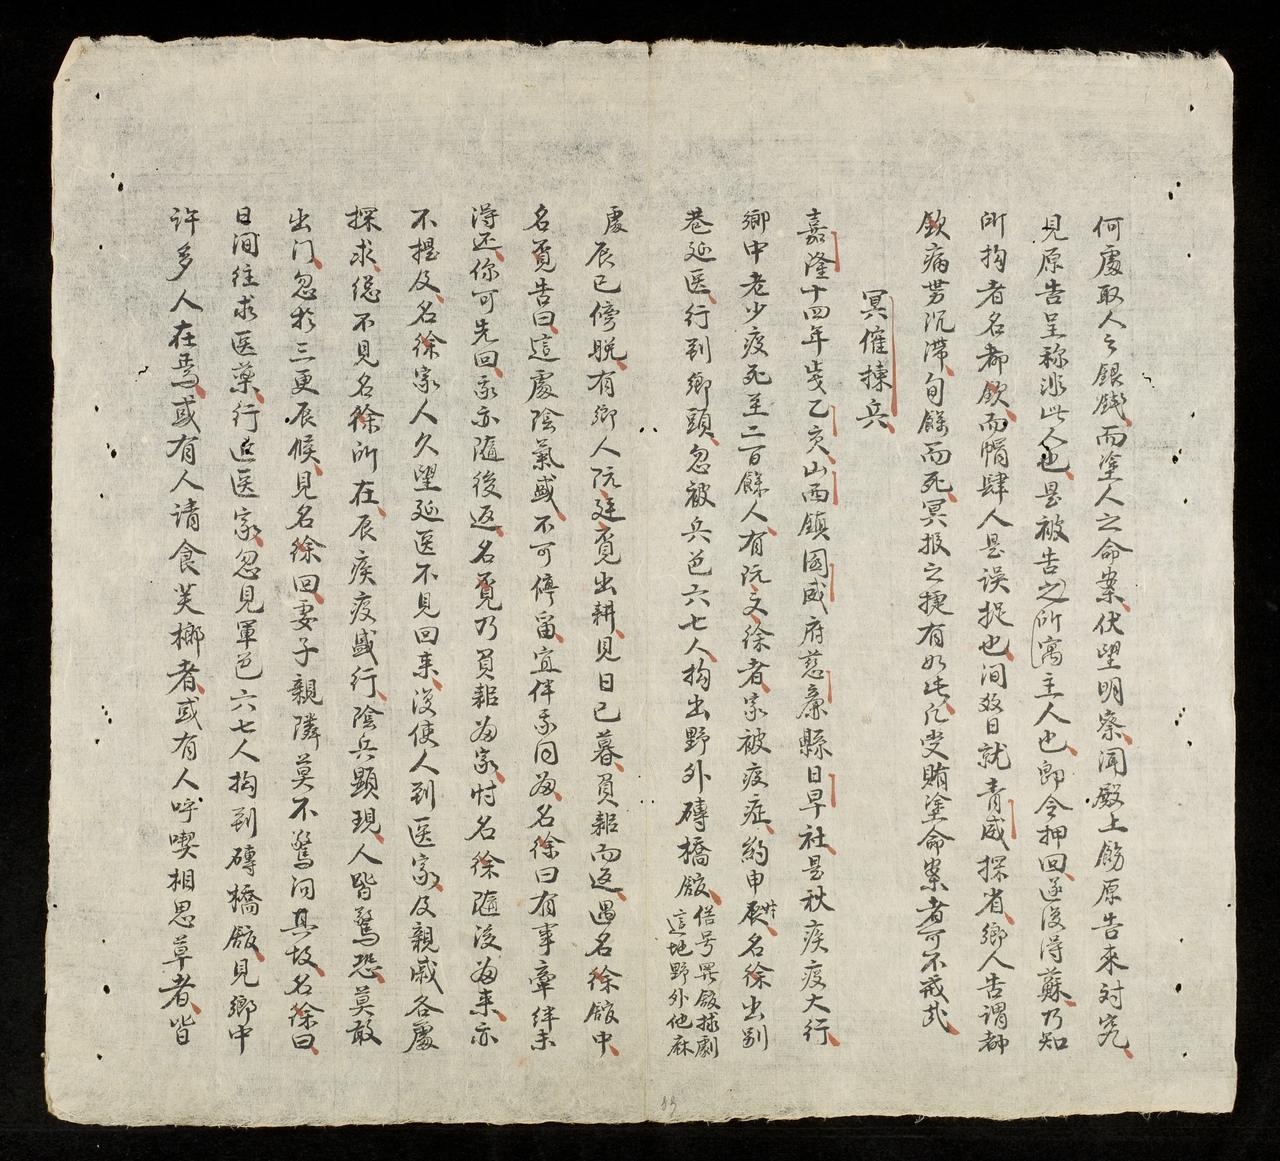 何處取人之銀錢而塗人之命案伏望明察闻殿上飭原告來対究
見原告呈称非此人也是被告之所寓主人也即令押回遂後得蘇乃知
所拘者名都欽而帽肆人是误捉也间数日就青威探省鄉人告謂都
欽病势沉滞旬餘而死冥报之捷有如此凡受賄塗命案者可不戒哉
冥催揀兵
嘉隆十四年歲乙亥山西鎮國威府慈廉縣日早社是秋疾疫大行
鄉中老少疫死至二百餘人有阮文徐者家被疫症約申辰时名徐出别
巷延医行到鄉頭忽被兵邑六七人拘出野外磚橋舘
俗号畢舘拯劇
這地野外他麻
處辰已傍晚有鄉人阮廷覓出耕見日已暮負耜而返遇名徐舘中
名覓告曰這處陰氣盛不可停留宜伴爾同为名徐曰有事牽绊未
得还你可先回家亦随後返名覓乃負耜为家忖名徐随後为来亦
不提及名徐家人久望延医不見回来没使人到医家及親戚各處
探求総不見名徐所在辰疾疫盛行陰兵顯現人皆驚恐莫敢
出门忽於三更辰候見名徐回妻子親隣莫不驚问其故名徐曰
日间往求医藥行近医家忽見軍邑六七人拘到磚橋舘見鄉中
许多人在焉或有人请食芙榔者或有人呼喫相思草者皆